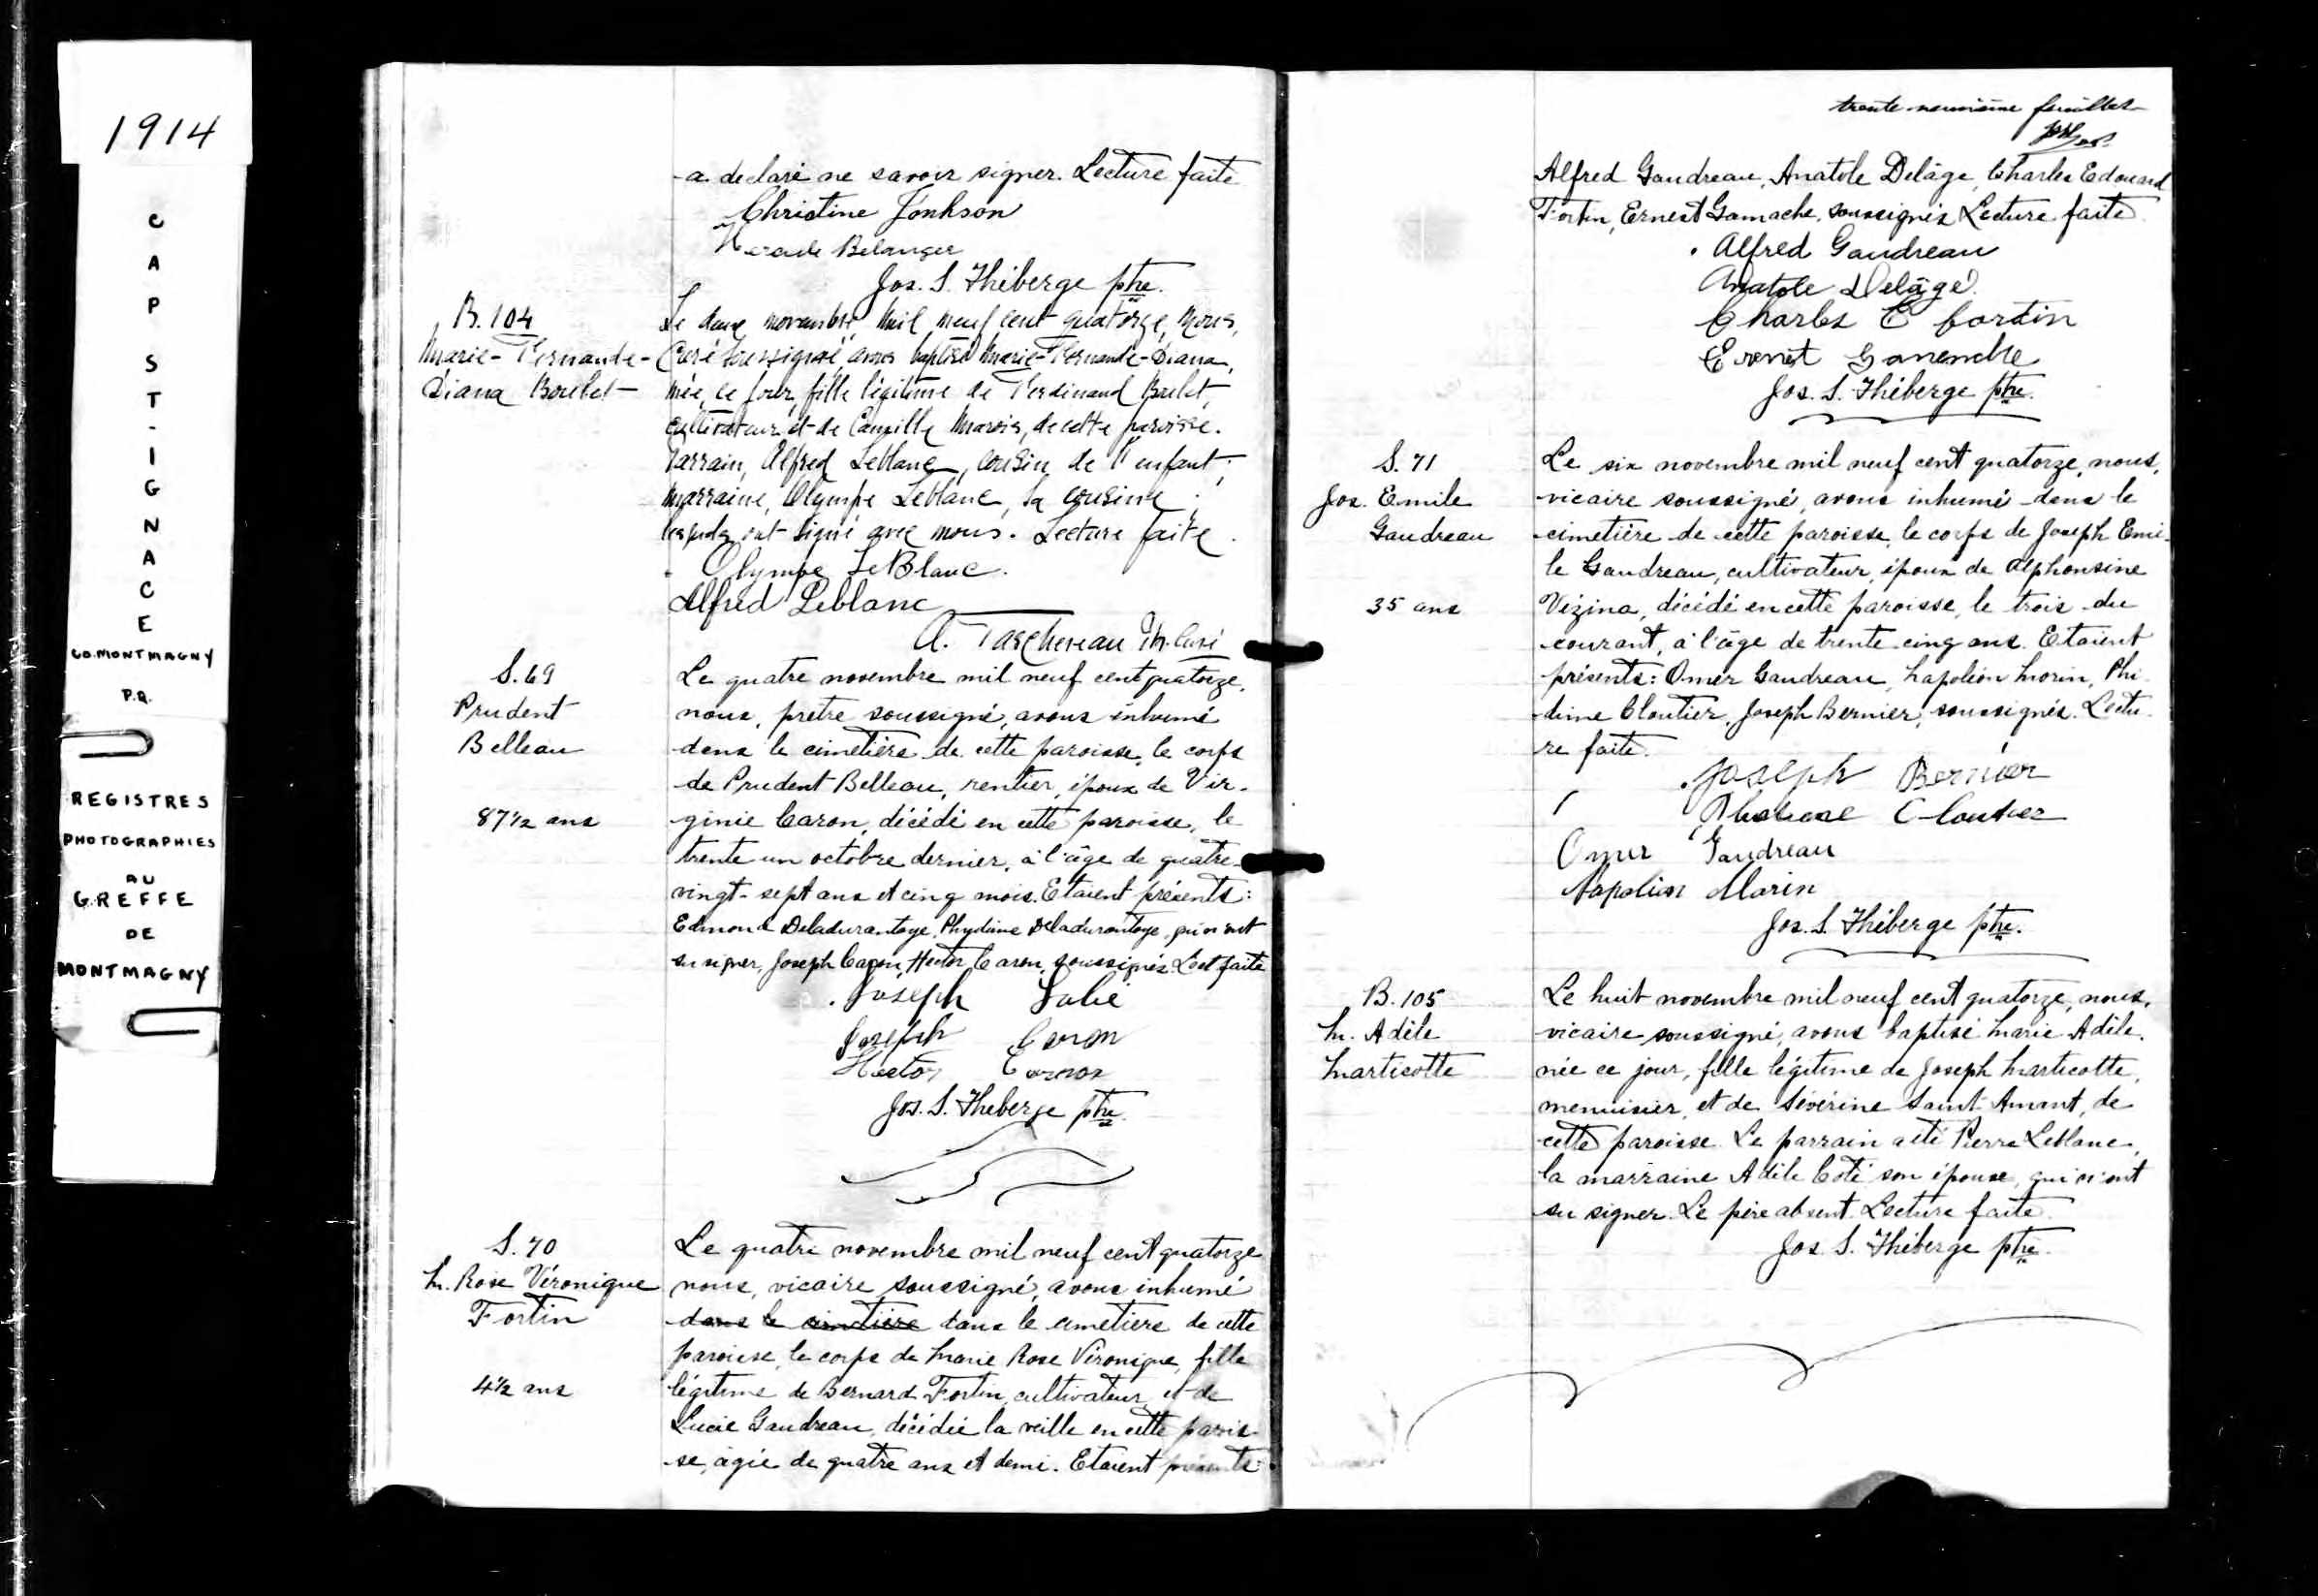 1914
CAP ST-IGNACE
CO. MONTMAGNY
P.Q.
REGISTRES
PHOTOGRAPHIES
AU
GREFFE
DE
MONTMAGNY
a declaré ne savoir signer. Lecture faite
Christine Jonhson
Belanger
Jos. S. Théberge ptre.
B. 104
Marie-Fernande-
Diana Boulet
Le deux novembre mil neuf cent quatorze, nous,
Curé soussigné, avons baptisé Marie-Fernande-Diana,
née, ce jour, fille légitime de Ferdinand Boulet,
cultivateur et de Camille Marois, de cette paroisse.
Parrain, Alfred Leblanc, cousin de l'enfant;
marraine, Olympe Leblanc, sa cousine;
lesquels ont signé avec nous. Lecture faite.
Olympe LeBlanc.
Alfred Leblanc
A. Taschereau Ptr. Curé
S. 69
Prudent
Belleau
87 1/2 ans
Le quatre novembre mil neuf cent quatorze,
nous, prêtre soussigné, avons inhumé
dans le cimetière de cette paroisse, le corps
de Prudent Belleau, rentier, époux de Vir-
ginie Caron, décédé en cette paroisse, le
trente un octobre dernier, à l'âge de quatre-
vingt-sept ans et cinq mois. Etaient présents:
Edmond Deladurantaye, Phydime Deladurantaye, qui n'ont
su signer, Joseph Caron, Hector Caron, soussignés. Lect faite
Joseph
Joseph Caron
Hector Caron
Jos. S. Theberge ptre.
S. 70
M. Rose Véronique
Fortin
4 1/2 ans
Le quatre novembre mil neuf cent quatorze
nous, vicaire soussigné, avons inhumé
dans le cimetière dans le cimetiere de cette
paroisse, le corps de Marie Rose Véronique, fille
légitime de Bernard Fortin, cultivateur, et de
Lucie Gaudreau, décédée la veille en cette parois-
se, âgée de quatre ans et demi. Etaient présents:
trente-neuvième feuillet
Alfred Gaudreau, Anatole Delâge, Charles Edouard
Fortin, Ernest Gamache, soussignés Lecture faite.
Alfred Gaudreau
Anatole Delâge
Charles E fortin
Ernest
Jos. S. Théberge ptre.
S. 71
Jos. Emile
Gaudreau
35 ans
Le six novembre mil neuf cent quatorze, nous,
vicaire soussigné, avons inhumé dans le
cimetière de cette paroisse, le corps de Joseph Emi-
le Gaudreau, cultivateur, époux de Alphonsine
Vézina, décédé en cette paroisse, le trois du
courant, à l'âge de trente-cinq ans. Etaient
présents: Omer Gaudreau, Napoléon Morin, Phi-
dime Cloutier, Joseph Bernier, soussignés. Lectu-
re faite.
Joseph Bernier
Cloutier
Omer Gaudreau
Napoléon Morin
Jos. S. Théberge ptre.
B. 105
M. Adèle
Marticotte
Le huit novembre mil neuf cent quatorze, nous,
vicaire soussigné, avons baptisé Marie Adèle,
née ce jour, fille légitime de Joseph Marticotte,
menuisier, et de Sévérine Saint-Amant, de
cette paroisse. Le parrain a été Pierre Leblanc,
la marraine Adèle Coté son épouse, qui n'ont
su signer. Le père absent. Lecture faite.
Jos. S. Théberge ptre.